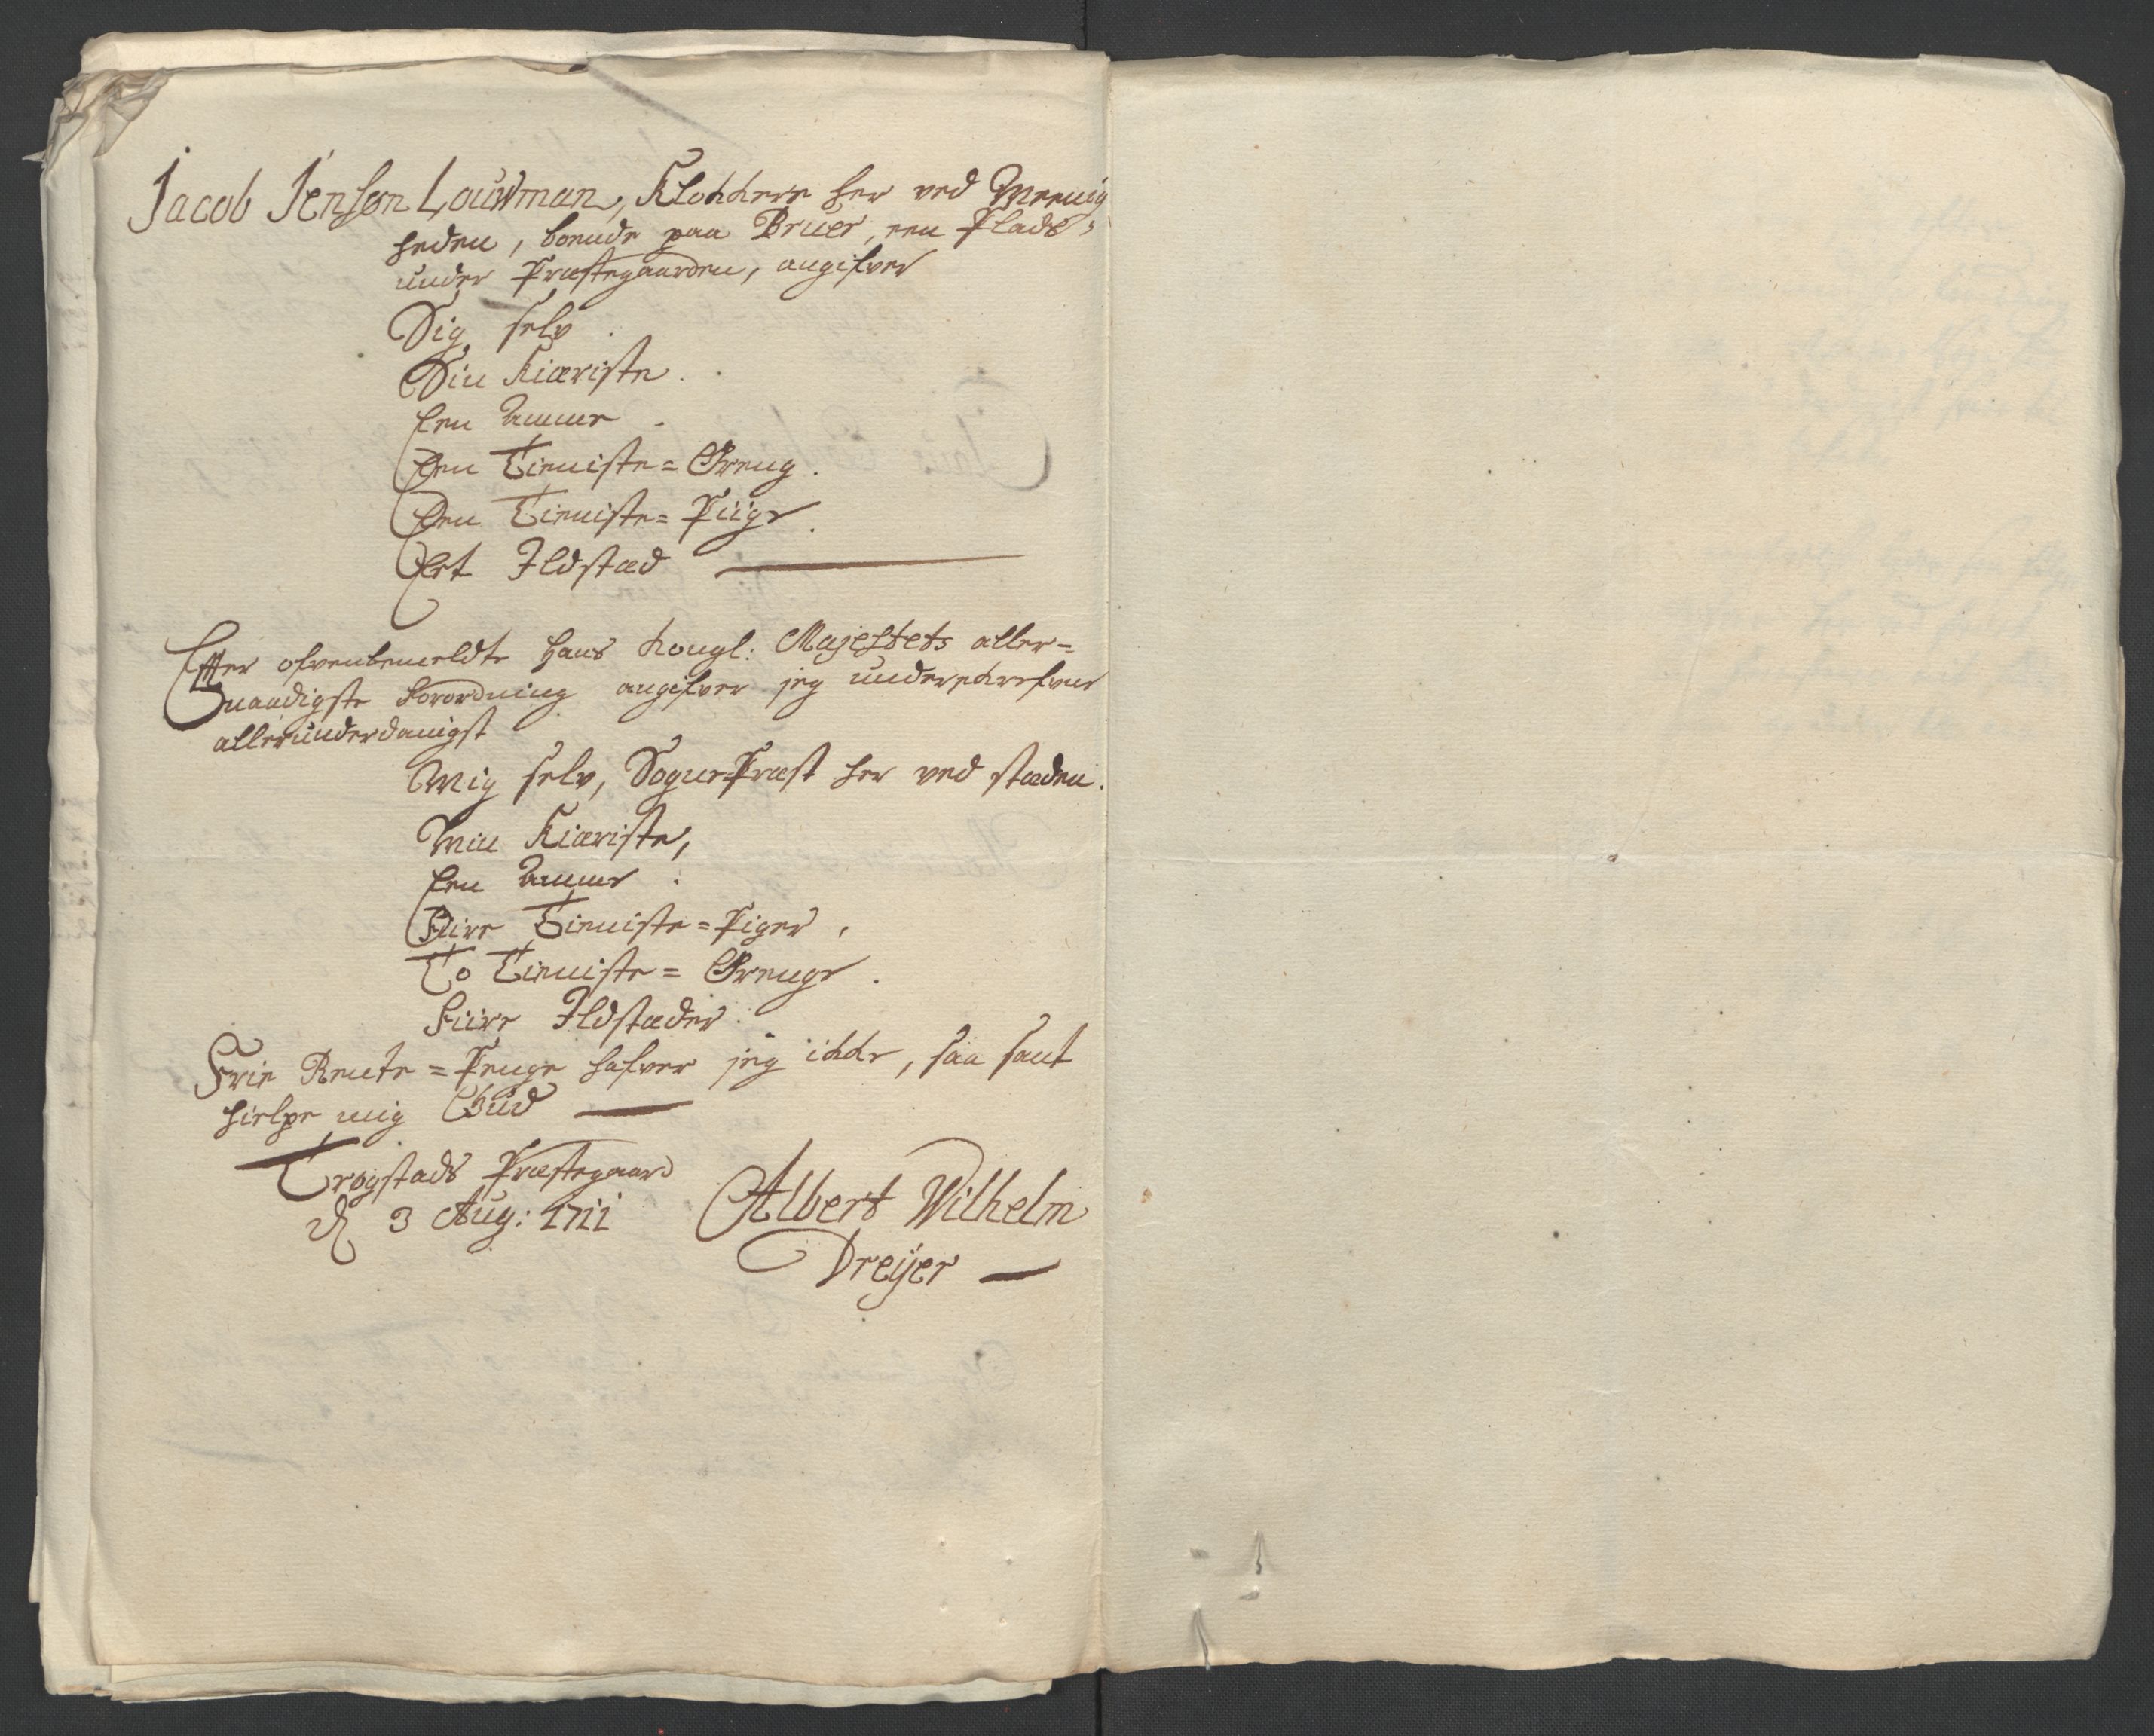 Jacob Jensøn Louwman, Klokkere her ved Meenig
heden, boende paa Bruer, een Plads,
under Præstegaarden, angifver
Sig selv.
Sin Kiæriste.
Een Amme.
Een Tieniste=Dreng.
Een Tieniste=Piige.
Eet Ildstæd
Efter ofvenbemeldte Hans Kongl: Majestets aller=
Naadigste Forordning angifver jeg underskrefvne
allerunderdanigst
Mig selv, SognePræst her ved stæden.
Min Kiæriste,
Een Amme.
Fiire Tieniste=Piger,
To Tieniste=Drenge.
Fiire Ildstæder.
Frie Rente=Penge hafver jeg ikke, saa sant
hielpe mig Gud
Trøgstads Præstegaard
d 3 Aug: 1711
Albert Wilhelm
Dreÿer